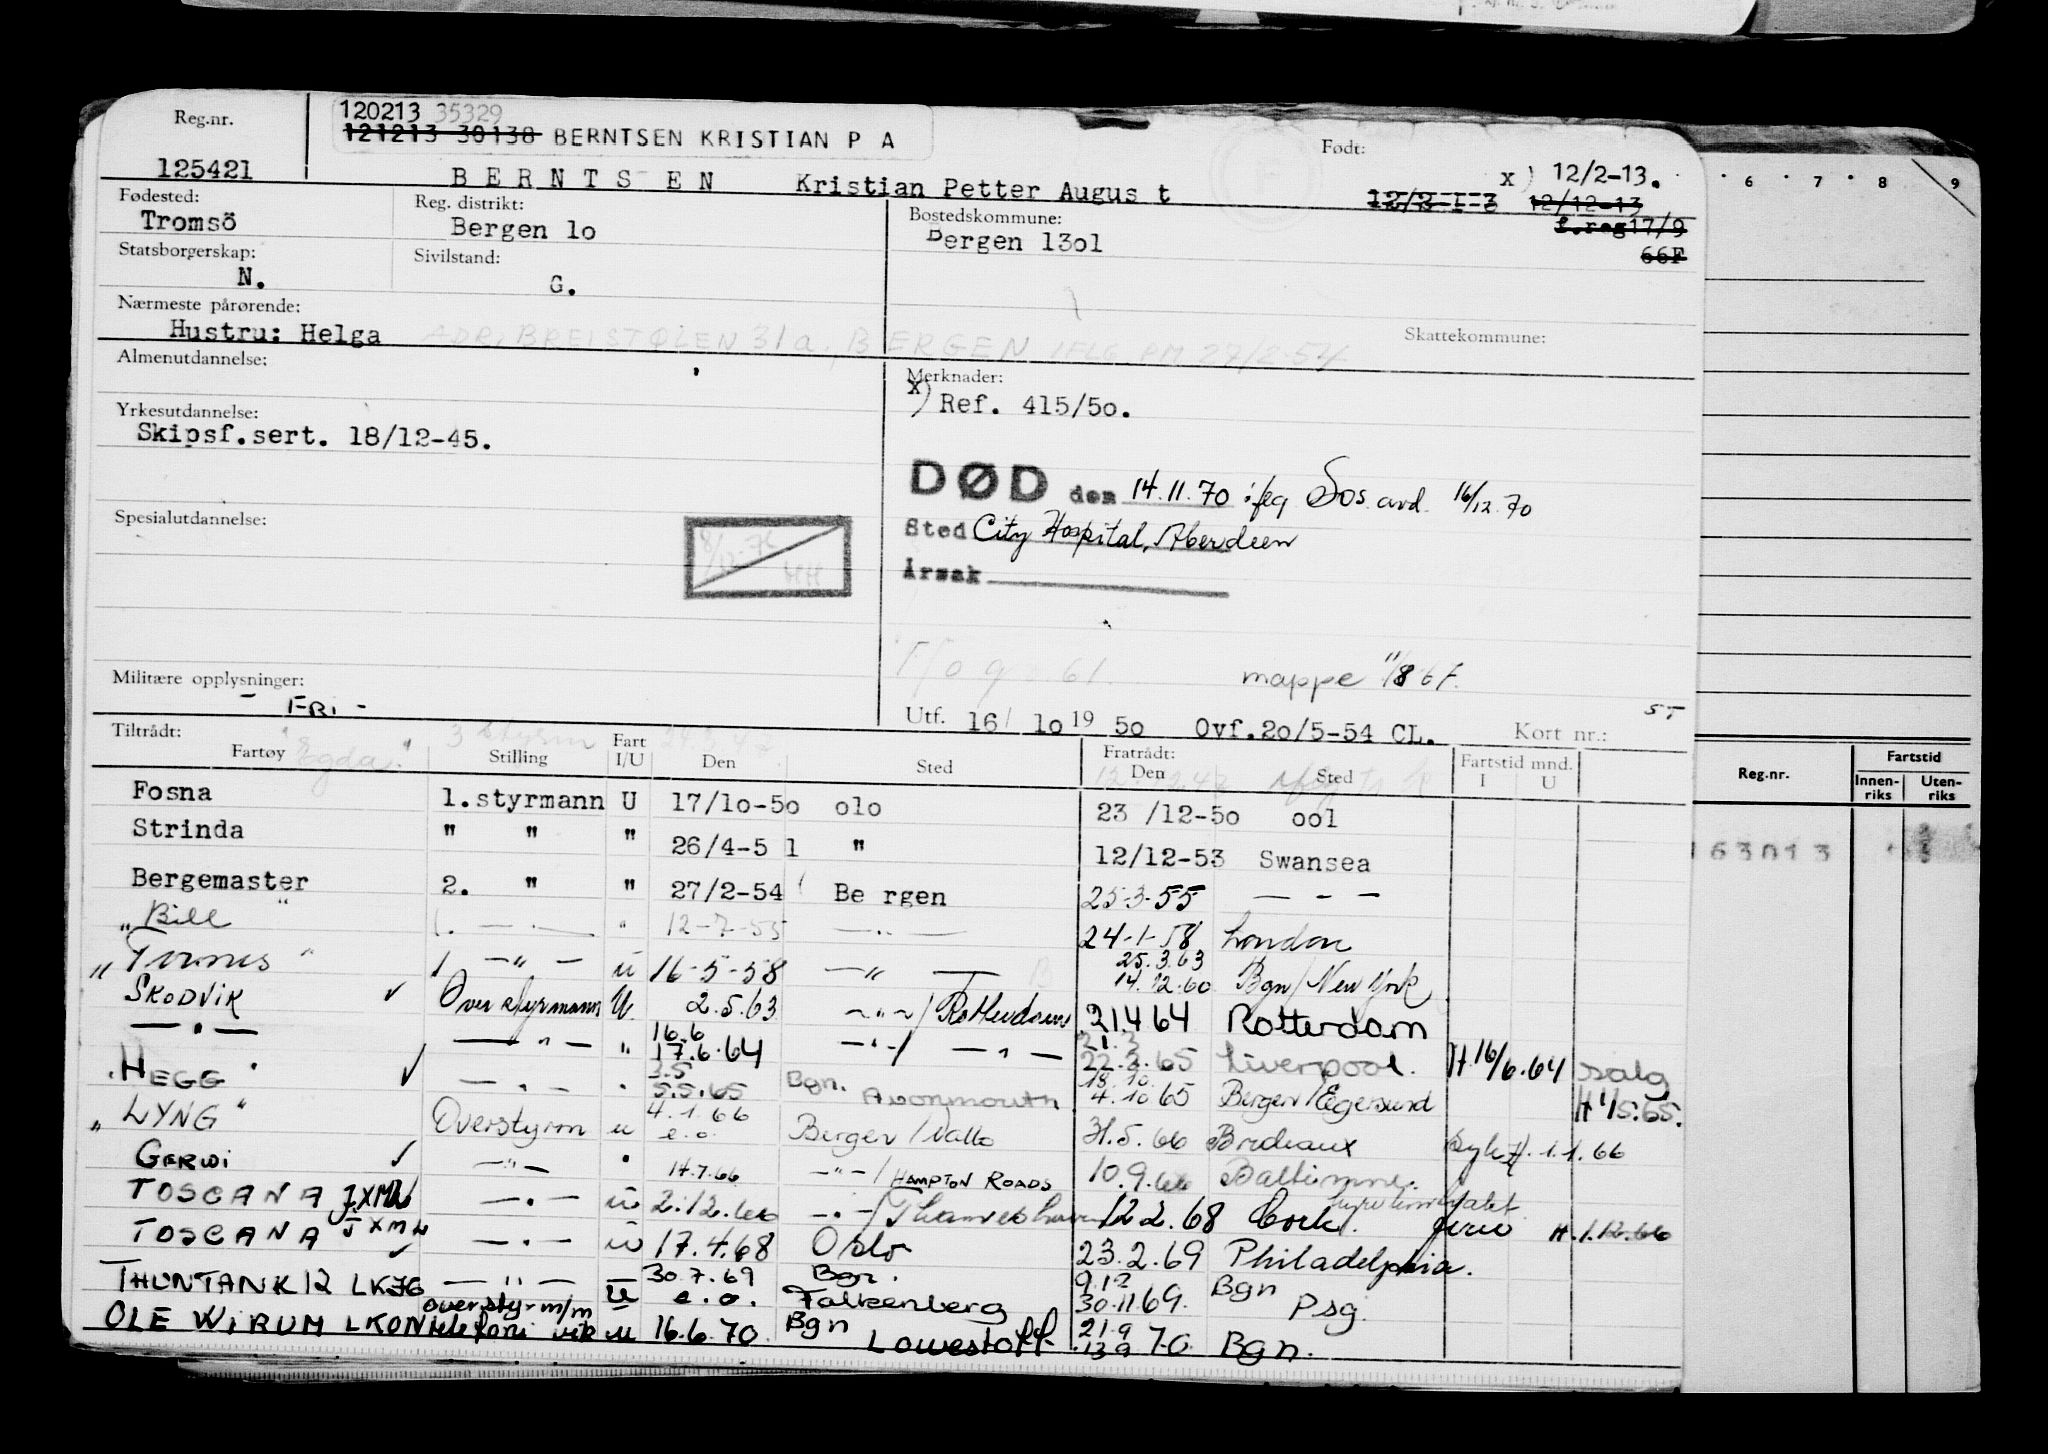 Reg.nr.
125421
120213 35329
121213 30138 BERNTSEN KRISTIAN P A
BERNTSEN Kristian Petter Augus t
Født:
x) 12/2-13.
12/2-1-3 12/12-13
f.reg17/9
66F
Fødested:
Tromsö
Reg. distrikt:
Bergen lo
Bostedskommune:
Bergen 13ol
Statsborgerskap:
N.
Sivilstand:
G.
Nærmeste pårørende:
Hustru: Helga
ADR. BREISTØLEN 31a, BERGEN IFLG. PM 27/2-54
Skattekommune:
Almenutdannelse:
Merknader:
x) Ref. 415/5o.
Yrkesutdannelse:
Skipsf.sert. 18/12-45.
DØD den 14.11.70 iføg Sos. avd. 16/12.70
Sted City Hospital, Aberdeen
Årsak
Spesialutdannelse:
mappe 11/8 67.
Militære opplysninger:
- FRI -
Utf. 16/ 1o 19 5o Ovf.2o/5-54 CL. Kort nr.:
ST
Tiltrådt:
Fartøy Stilling Fart I/U Den Sted Fratrådt: Den Sted Fartstid mnd. I U
"Egda" 3 styrm 24.3.47
Fosna 1.styrmann U 17/1o-5o olo 23 /12-5o ool
Strinda " " " 26/4-5 1 " 12/12-53 Swansea
Bergemaster 2. " " 27/2-54 Be rgen 25-3-55 — - —
"Bill" 1. — " — " 12-7-55 — " — 24-1-58 London
" " 1 — " — u 16-5-58 — " — 25.3.63 14.12.60 Bgn/New York
SKODVIK ✓ Overstyrmann U. 2.5.63 — " — /Rotterdam 21.4 64 Rotterdam
— " — — " — " 16.6 17.6.64 — " — / — " — 21.3 22.2.65 Liverpool. H.16/6.64 salg
"HEGG" ✓ — " — " 3.5 5.5.65 Bgn. Avonmouth 18.10 4.10 65 Bergen/Egersund H 1/5.65.
"LYNG" Overstyrm u 4.1.66 e.o. Bergen/Vallo 31.5.66 Bordeaux Syk H. 1.1.66
GERWI ✓ — " — " 14.7.66 — " — /HAMPTON ROADS 10.9.66 Baltimore.
TOSCANA JXMW — " — u 2.12.66 — " — /Thameshaven 12 2.68 Cork. H.1.12.66
TOSCANA JXMW ✓ — " — u 17.4.68 Oslo 23.2.69 Philadelphia.
THUNTANK 12 LKJG — " — U 30.7.69 e.o. Bgn. Falkenberg 9.12 30.11.69. Bgn Psg.
OLE WIRUM LKON overstyrm/m telefoni vik u 16.6.70. Bgn Lowestoft 21.9 13.9 70 Bgn.
6 7 8 9
Reg.nr. Fartstid
Innen-riks Uten-riks
163013